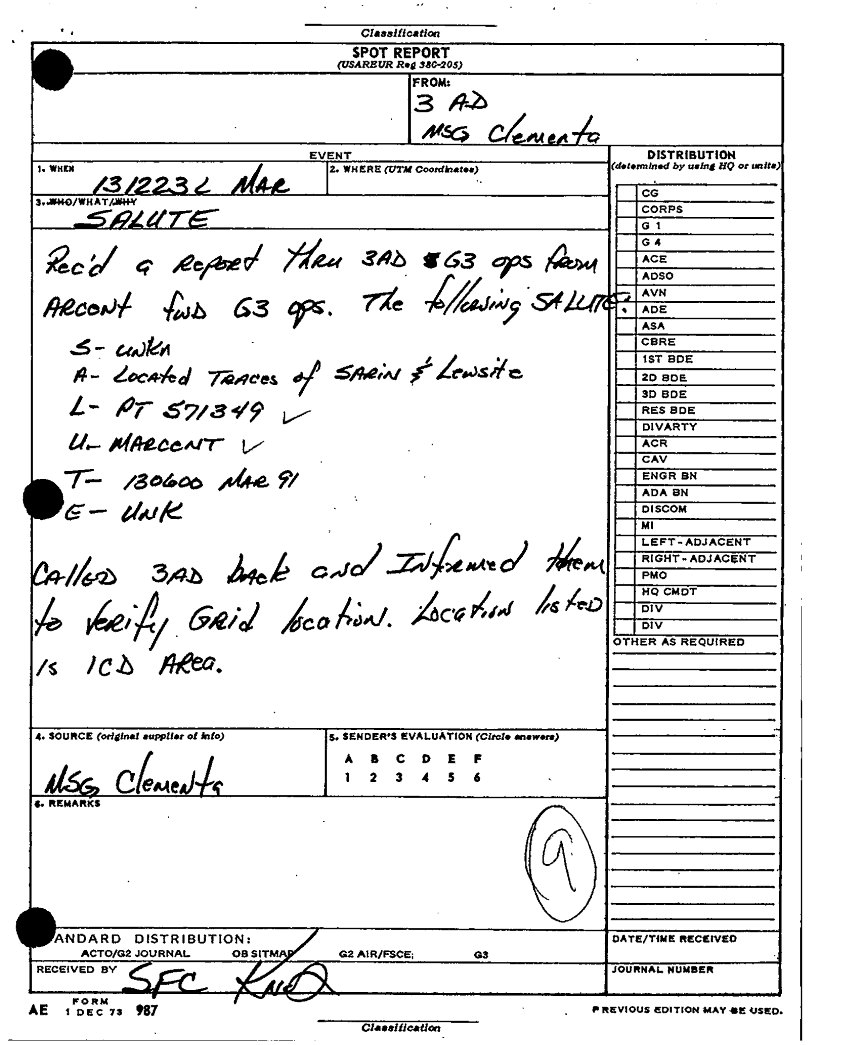 Classification
SPOT REPORT
(USAREUR Reg 380-205)
FROM:
3 AD
MSG Clementa
EVENT
1. WHEN
131223L MAR
2. WHERE (UTM Coordinates)
3. WHO/WHAT/WHY
SALUTE
Rec'd a report thru 3AD G3 ops from
ARCENT fwd G3 ops. The following SALUTE:
S- UNKn
A- Located Traces of SARIN & Lewsite
L- PT 571349 ✓
U- MARCENT ✓
T- 130600 MAR 91
E- UNK
Called 3AD back and Informed them
to verify GRid location. Location listed
is 1CD AREa.
DISTRIBUTION
(determined by using HQ or units)
CG
CORPS
G 1
G 4
ACE
ADSO
AVN
ADE
ASA
CBRE
1ST BDE
2D BDE
3D BDE
RES BDE
DIVARTY
ACR
CAV
ENGR BN
ADA BN
DISCOM
MI
LEFT-ADJACENT
RIGHT-ADJACENT
PMO
HQ CMDT
DIV
DIV
OTHER AS REQUIRED
4. SOURCE (original supplier of info)
MSG Clementa
5. SENDER'S EVALUATION (Circle answers)
A B C D E F
1 2 3 4 5 6
6. REMARKS
9
ANDARD DISTRIBUTION:
ACTO/G2 JOURNAL OB SITMAP G2 AIR/FSCE; G3
RECEIVED BY SFC
DATE/TIME RECEIVED
JOURNAL NUMBER
AE FORM 1 DEC 73 987
PREVIOUS EDITION MAY BE USED.
Classification